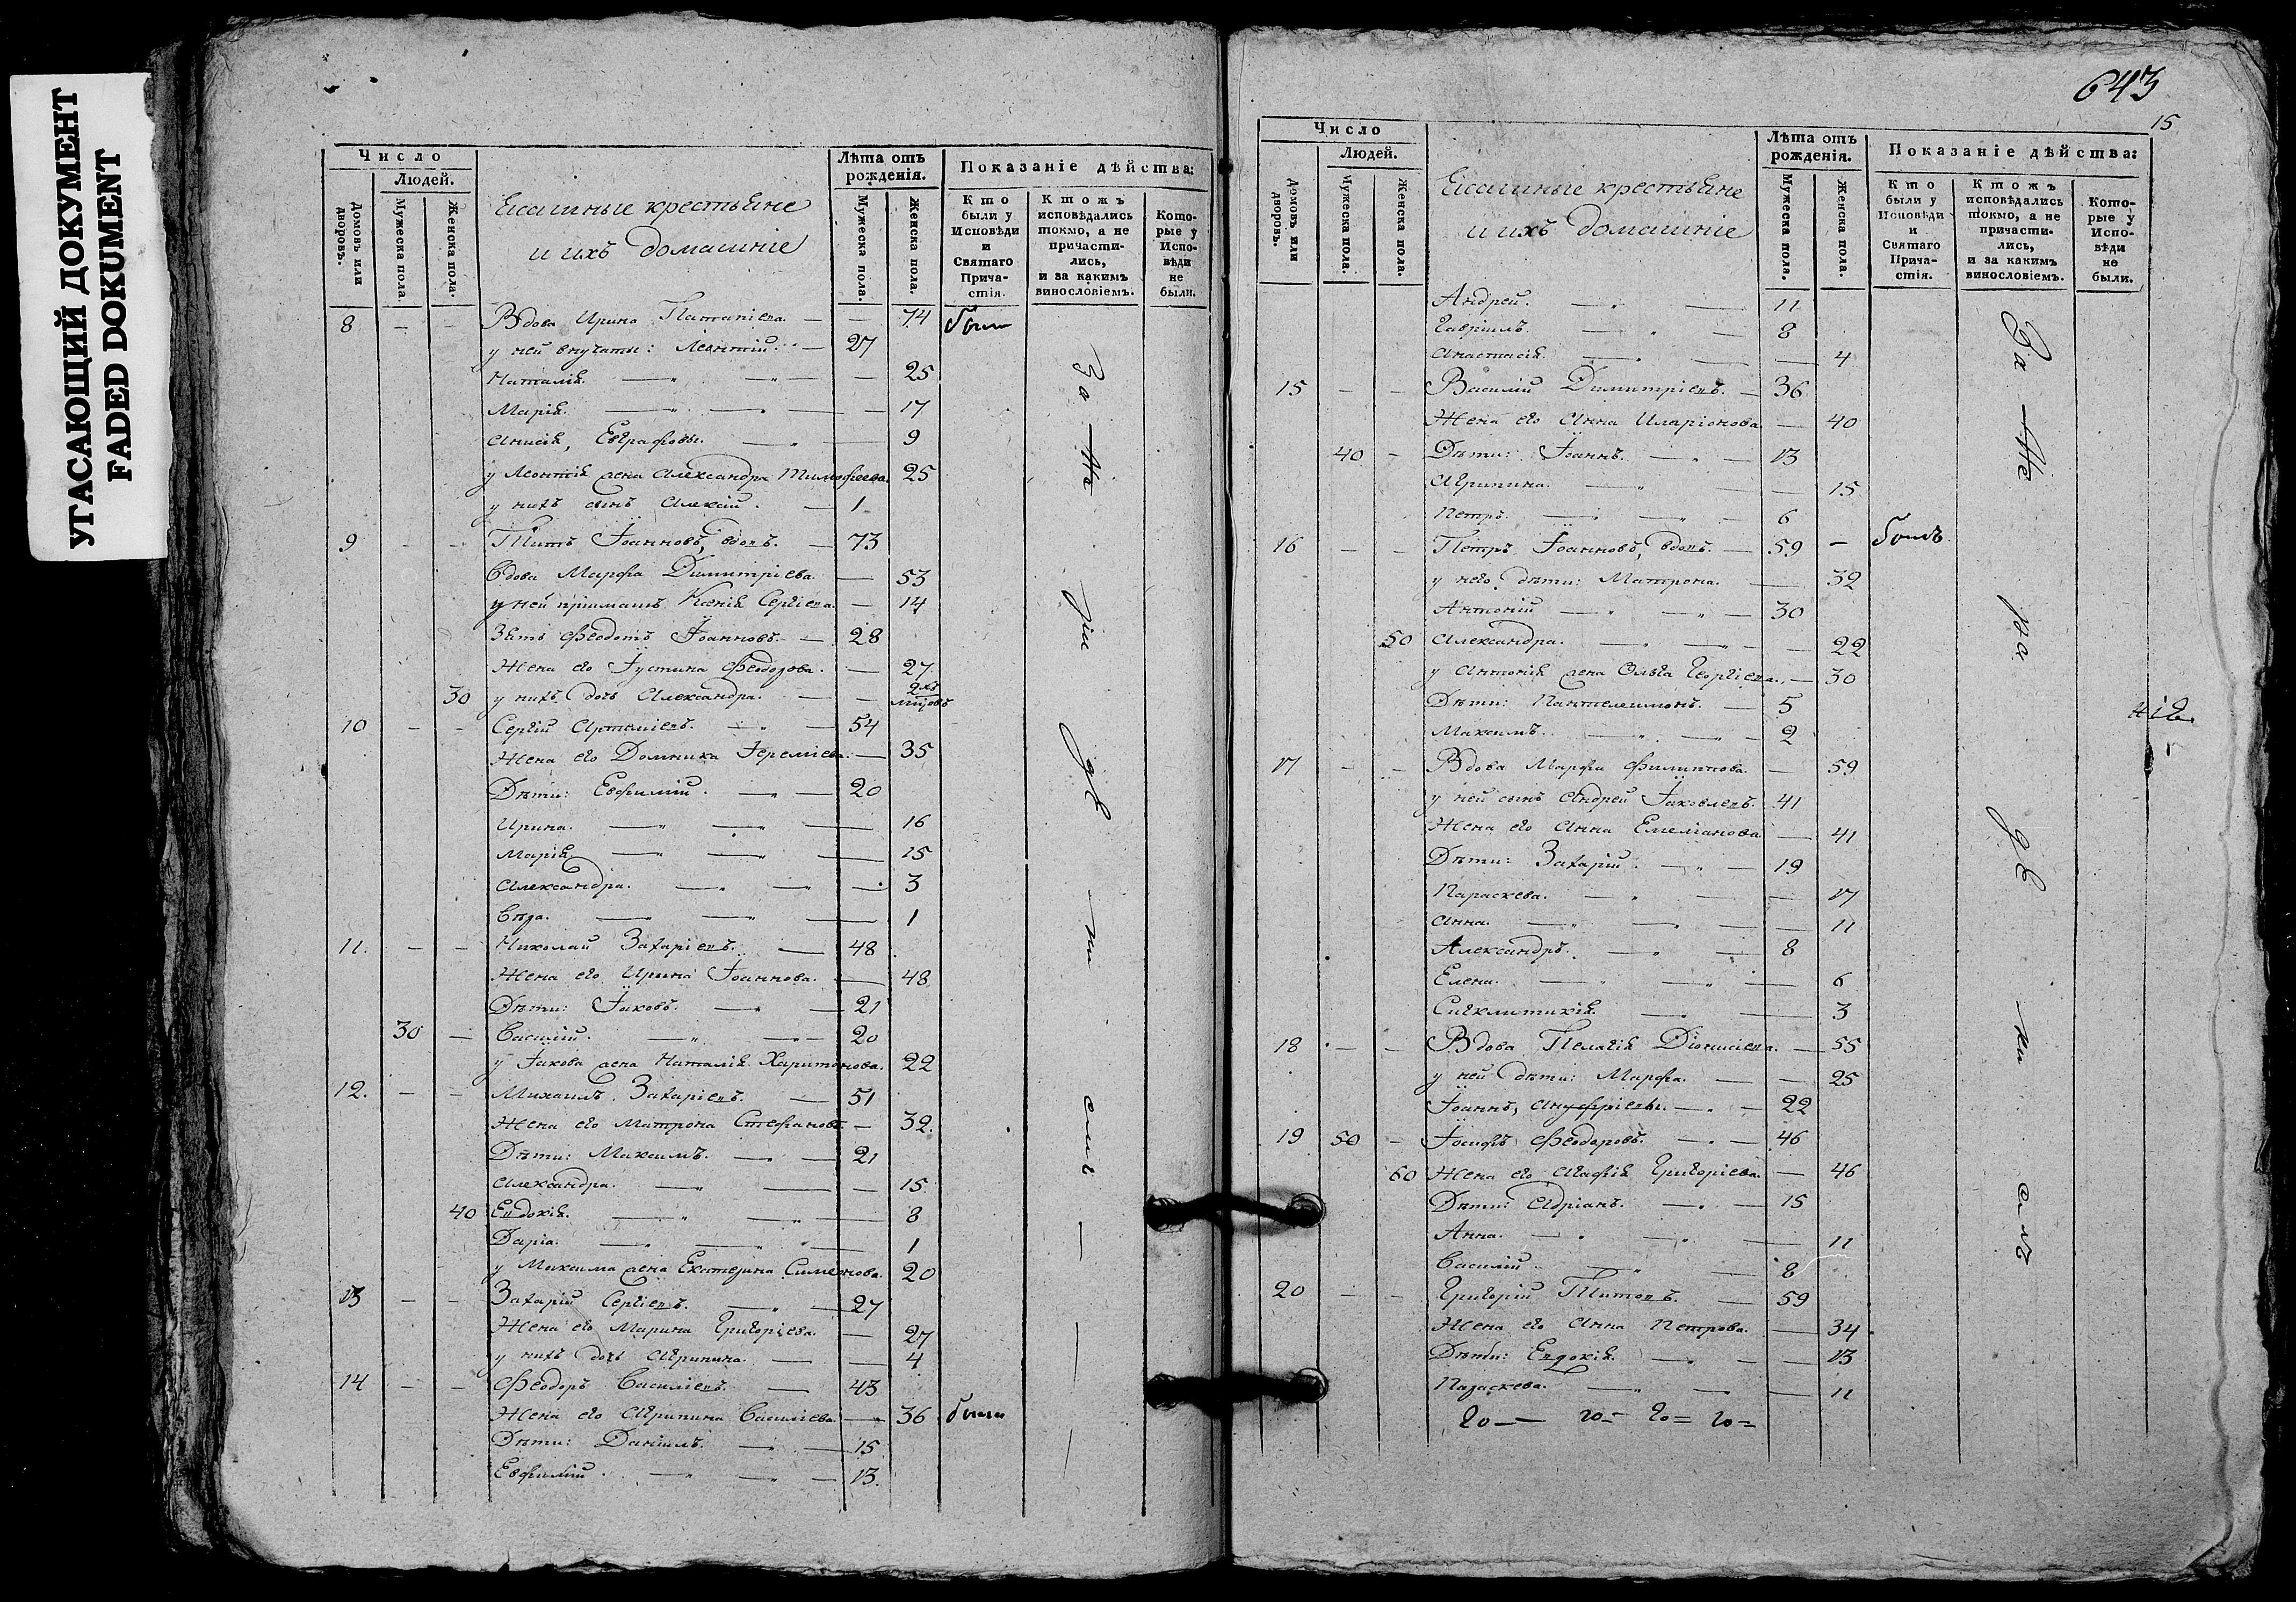 УГАСАЮЩИЙ ДОКУМЕНТ
FADED DOKUMENT
Число
Людей.
Домовъ или дворовъ.
Мужеска пола.
Женска пола.
крестьяне
и ихъ домашніе
Лѣта отъ рожденія.
Мужеска пола.
Женска пола.
Показаніе дѣйства:
Кто были у Исповѣди и Святаго Прича-стія.
Ктожъ исповѣдались токмо, а не причасти-лись, и за какимъ винословіемъ.
Кото-рые у Испо-вѣди не были.
8 – – Вдова Ирина – – 74 были
у ней внучаты: Леонтій. – 27
Наталія. – 25
Марія. – 17
Анисія, Евграфовы. – 9
у Леонтія жена Александра Тимофеева. 25
у нихъ сынъ Алексій. – 1
9 – – Титъ Іоанновъ, вдовъ. – 73
Вдова Марфа Димитріева. – 53
у ней пріимашъ Ксенія Сергіева. – 14
Зять Феодотъ Іоанновъ. – 28
Жена его Іустина Феодорова. – 27
30 у нихъ дочь Александра. – 2хъ мцовъ
10 – – Сергій Артеміевъ. – 54
Жена его Домника Іереміева. – 35
Дѣти: Евфимій. – 20
Ирина. – 16
Марія. – 15
Александра. – 3
Вѣра. – 1
11. – – Николай Захаріевъ. – 48
Жена его Ирина Іоаннова. – 48
Дѣти: Іаковъ. – 21
30 – Василій. – 20
у Іакова жена Наталія Харитонова. 22
12. – – Михаилъ Захаріевъ. – 51
Жена его Матрона Стефанова – 32.
Дѣти: Максимъ. – 21
Александра. – 15
40 Евдокія. – 8
Дарія. – 1
у Максима жена Екатерина Симеонова. 20
13 – – Захарій Сергіевъ. – 27
Жена его Марина Григоріева. – 27
у нихъ дочь Агрипина. – 4
14 – – Феодоръ Василіевъ. – 43
Жена его Агрипина Василіева. – 36 были
Дѣти: Даніилъ. – 15
Евфимій. – 13.
643
15
Число
Людей.
Домовъ или дворовъ.
Мужеска пола.
Женска пола.
крестьяне
и ихъ домашніе
Лѣта отъ рожденія.
Мужеска пола.
Женска пола.
Показаніе дѣйства:
Кто были у Исповѣди и Святаго Прича-стія.
Ктожъ исповѣдались токмо, а не причасти-лись, и за какимъ винословіемъ.
Кото-рые у Испо-вѣди не были.
Андрей. – 11
Гавріилъ. – 8
Анастасія. – 4
15 – – Василій Димитріевъ. – 36
Жена его Анна Иларіонова – 40
40 – Дѣти: Іоаннъ. – 13
Агрипина. – 15
Петръ. – 6
16 – – Петръ Іоанновъ, вдовъ. – 59 – былъ
у него дѣти: Матрона. – 32
Антоній – 30
50 Александра. – 22
у Антонія жена Ольга Георгіева. – 30
Дѣти: Пантелеимонъ. – 5
Максимъ. – 2
17 – – Вдова Марфа Филиппова. – 59
у ней сынъ Андрей Іаковлевъ. 41
Жена его Анна Емеліанова – 41
Дѣти: Захарій. – 19
Параскева. – 17
Анна. – 11
Александръ. – 8
Елена. – 6
Сигклитикія. – 3
18 – – Вдова Пелагія Діонисіева. – 55
у ней дѣти: Марфа. – 25
Іоаннъ, Ануфріевы. – 22
19 50 – Іосифъ Феодоровъ. – 46
60 Жена его Агафія Григоріева. – 46
Дѣти: Адріанъ. – 15
Анна. – 11
Василій – 8
20 – – Григорій Титовъ. – 59
Жена его Анна Петрова. – 34
Дѣти: Евдокія. – 13
Параскева. – 11